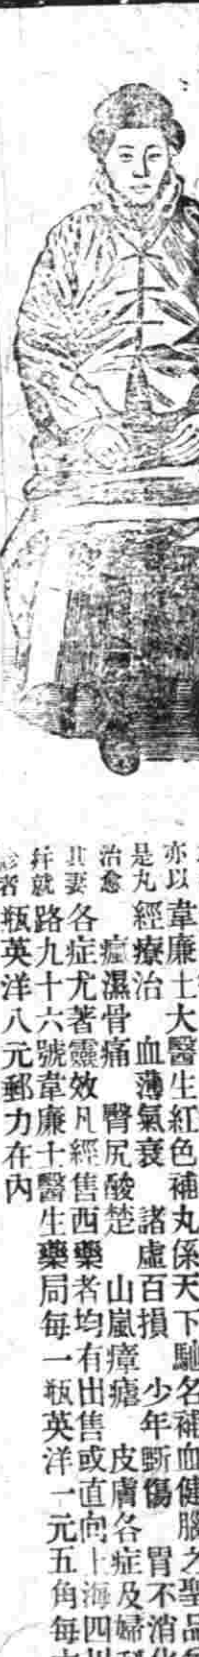 亦以韋廉士大醫生紅色補丸係天下馳名補血健腦之聖品
是丸經療治 血薄氣衰 諸虛百損 少年斲傷 胃不消化
治愈 瘋濕骨痛 臀尻酸楚 山嵐瘴瘧 皮膚各症及婦科
其妻各症尤著靈效凡經售西藥者均有出售或直向上海四川
路九十六號韋廉士醫生藥局每一瓶英洋一元五角每六
瓶英洋八元郵力在內